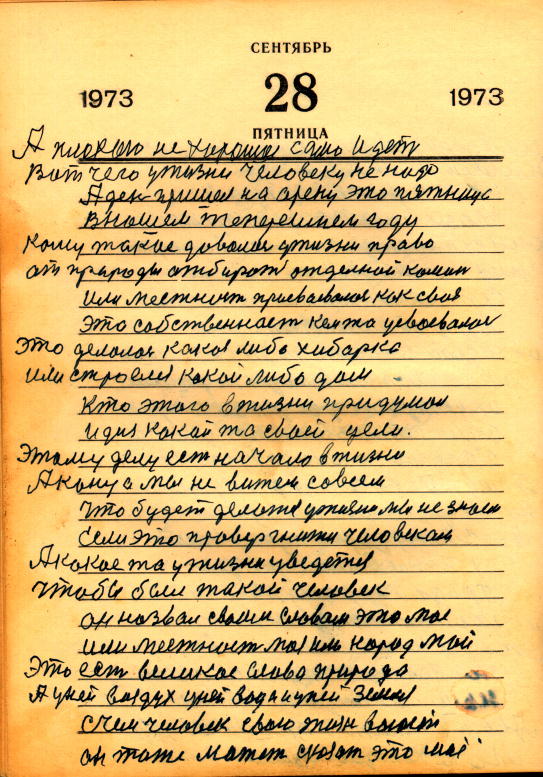 СЕНТЯБРЬ
1973 28 1973
ПЯТНИЦА
А плохого не хорошее само идет
Вот чего у жизни человеку не надо
А ден пришел на арену это пятница
В нашем теперешнем году
Кому такое довалос у жизни право
от природы отбират отделной камин
Или местност присваевалос как своя
Это собственнаст кемта усвоевалос
Это делолос какоя либо хибарка
или строелся какой либо дом
Кто этого в жизни придумол
идя какой та своей цели.
Этому делу ест начало в жизни
А кону а мы не витем совсем
Что будет делотся у жизни мы не знаем
Если это
А какое та у жизни уведется
Чтобы был такой человек
он назвал своим словам это мое
Или местност моя или народ мой
Это ест великое слова природа
А у ней воздух у ней вода и у ней земля
С чем человек свою жизн
он тоже может сказат это моё